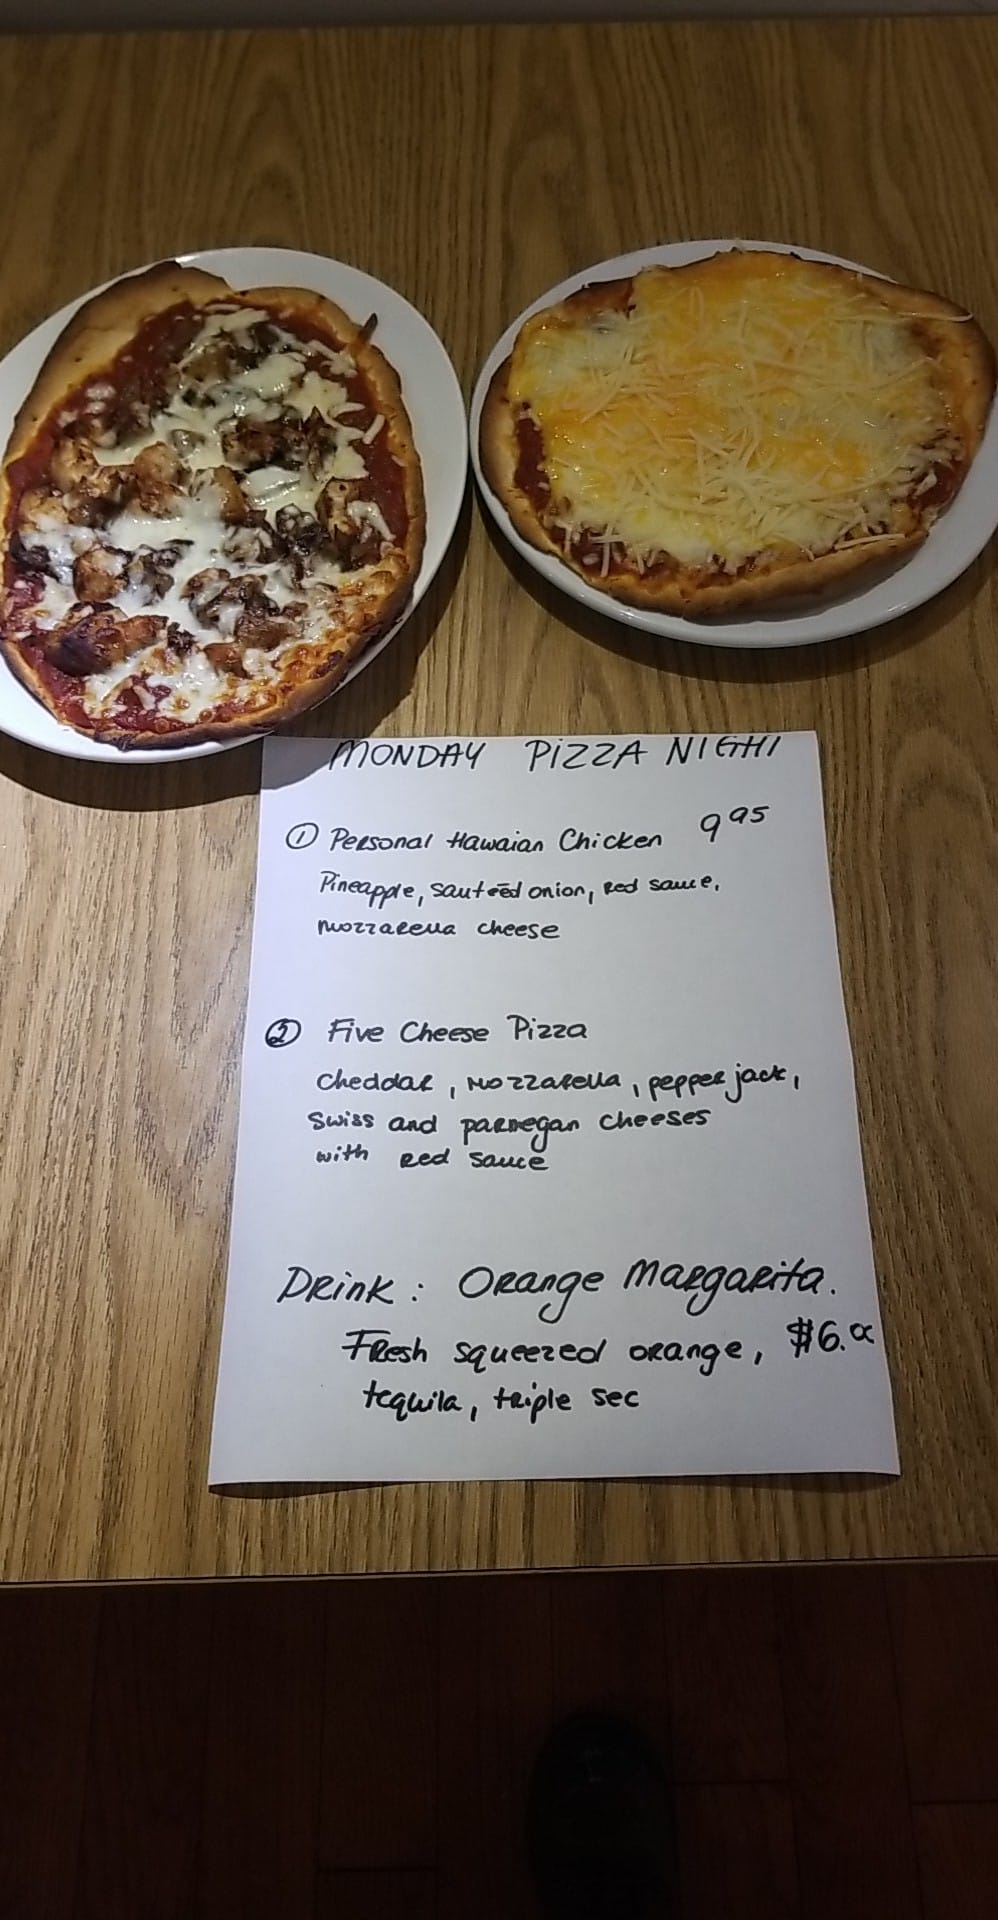 MONDAY PIZZA NIGHT
① Personal Hawaian Chicken 9 95
Pineapple, sauteed onion, red sauce,
mozzarella cheese
② Five Cheese Pizza
cheddar, mozzarella, pepper jack,
swiss and parmegan cheeses
with red sauce
DRINK: ORange MaRgaRita.
Fresh squeezed orange, $6.00
tequila, triple sec